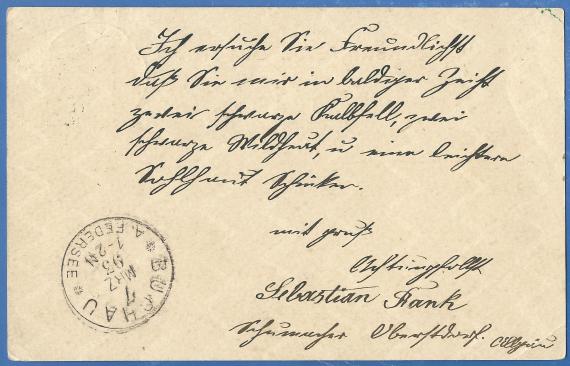 Ich ersuche Sie Freundlichst
daß Sie mir in baldiger Zeit
zwei schwarze Kalbfell, zwei
schwarze Wildheut, u eine leichtere
Sohlhaut Schicken.
mit gruß
Achtungsvollst
Sebastian Frank
Schumacher Oberstdorf. Allgäu
* BUCHAU *
A. FEDERSEE
1
MRZ
93
1-2N